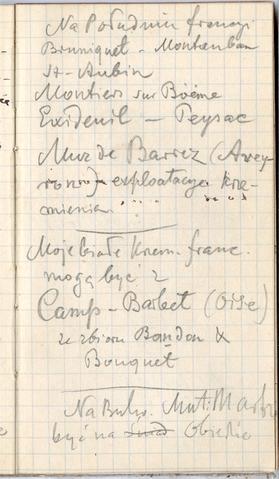 Na Południu francyi
Bruniquel - Montauban
St-Aubin
Montiers sur Boëme
Exideuil - Peysac
Mur de Barrez (Avey-
ron) exploatacya krze-
mienia.
Moje białe krzem. franc.
mogą być z
Camp-Barbet (Oise)
ze zbioru Baudon &
Bouquet
Na Bulw.
być na Obiedzie